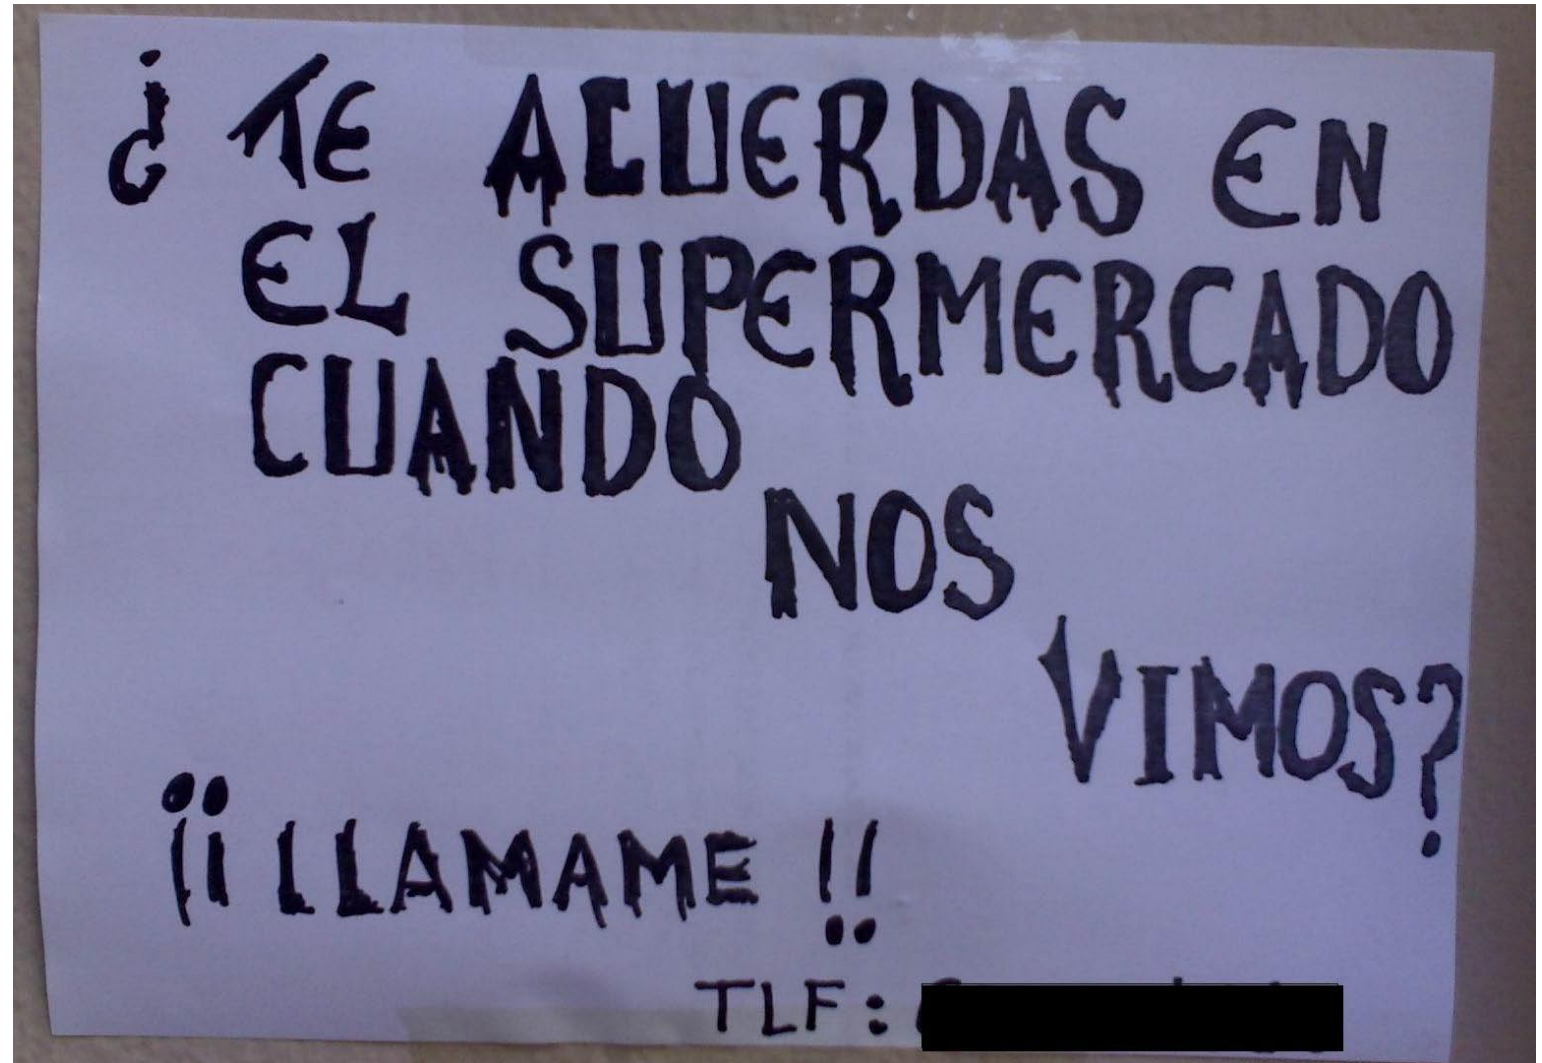 ¿ TE ACUERDAS EN
EL SUPERMERCADO
CUANDO
NOS
VIMOS?
¡¡ LLAMAME !!
TLF: